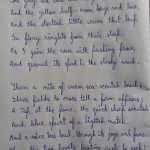 And the yellow half-moon large and low,
And the startled little waves that leap
In fiery ringlets from their sleep,
As I gain the cove with pushing prow,
And quench its speed i', the slushy sand.
Then a mile of warm sea-scented beach;
Three fields to cross till a farm appears;
A tap at the pane, the quick sharp scratch
And blue spurt of a lighted match,
And a voice less loud, through its joys and fears,
Than the two hearts beating each to each!